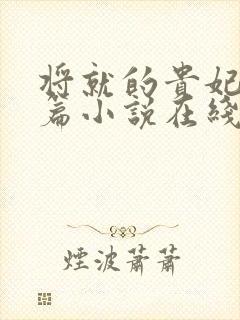 将就的貴妃
篇小說在綫
煙波蕭蕭